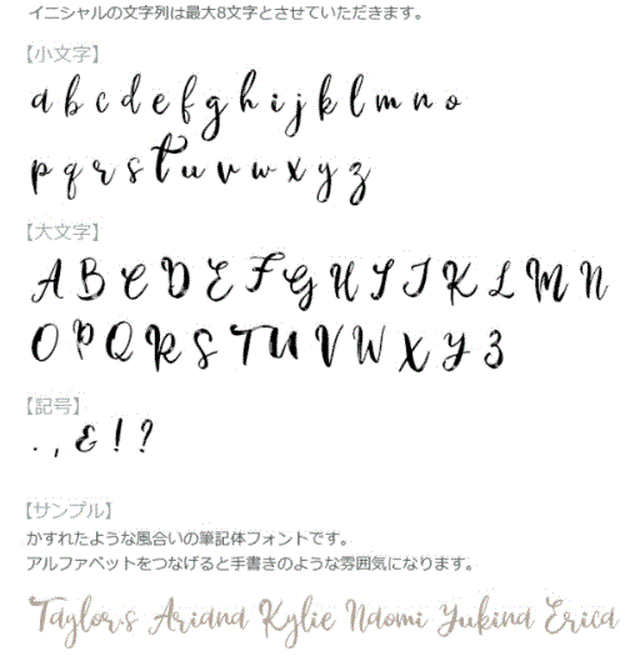 イニシャルの文字列は最大8文字とさせていただきます。
【小文字】
a b c d e f g h i j k l m n o
p q r s t u v w x y z
【大文字】
A B C D E F G H I J K L M N
O P Q R S T U V W X Y Z
【記号】
. , & ! ?
【サンプル】
かすれたような風合いの筆記体フォントです。
アルファベットをつなげると手書きのような雰囲気になります。
Taylor.s Ariana Kylie Naomi Yukina Erica